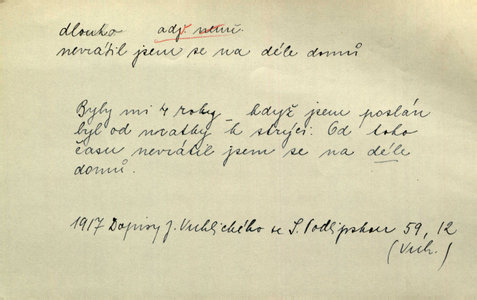 dlouho adj. neuč.
nevrátil jsem se na déle domů
Byly mi 4 roky – když jsem poslán
byl od matky k strýci. Od toho
času nevrátil jsem se na déle
domů.
1917 Dopisy J. Vrchlického se S. Podlipskou 59, 12
(Vrch.)